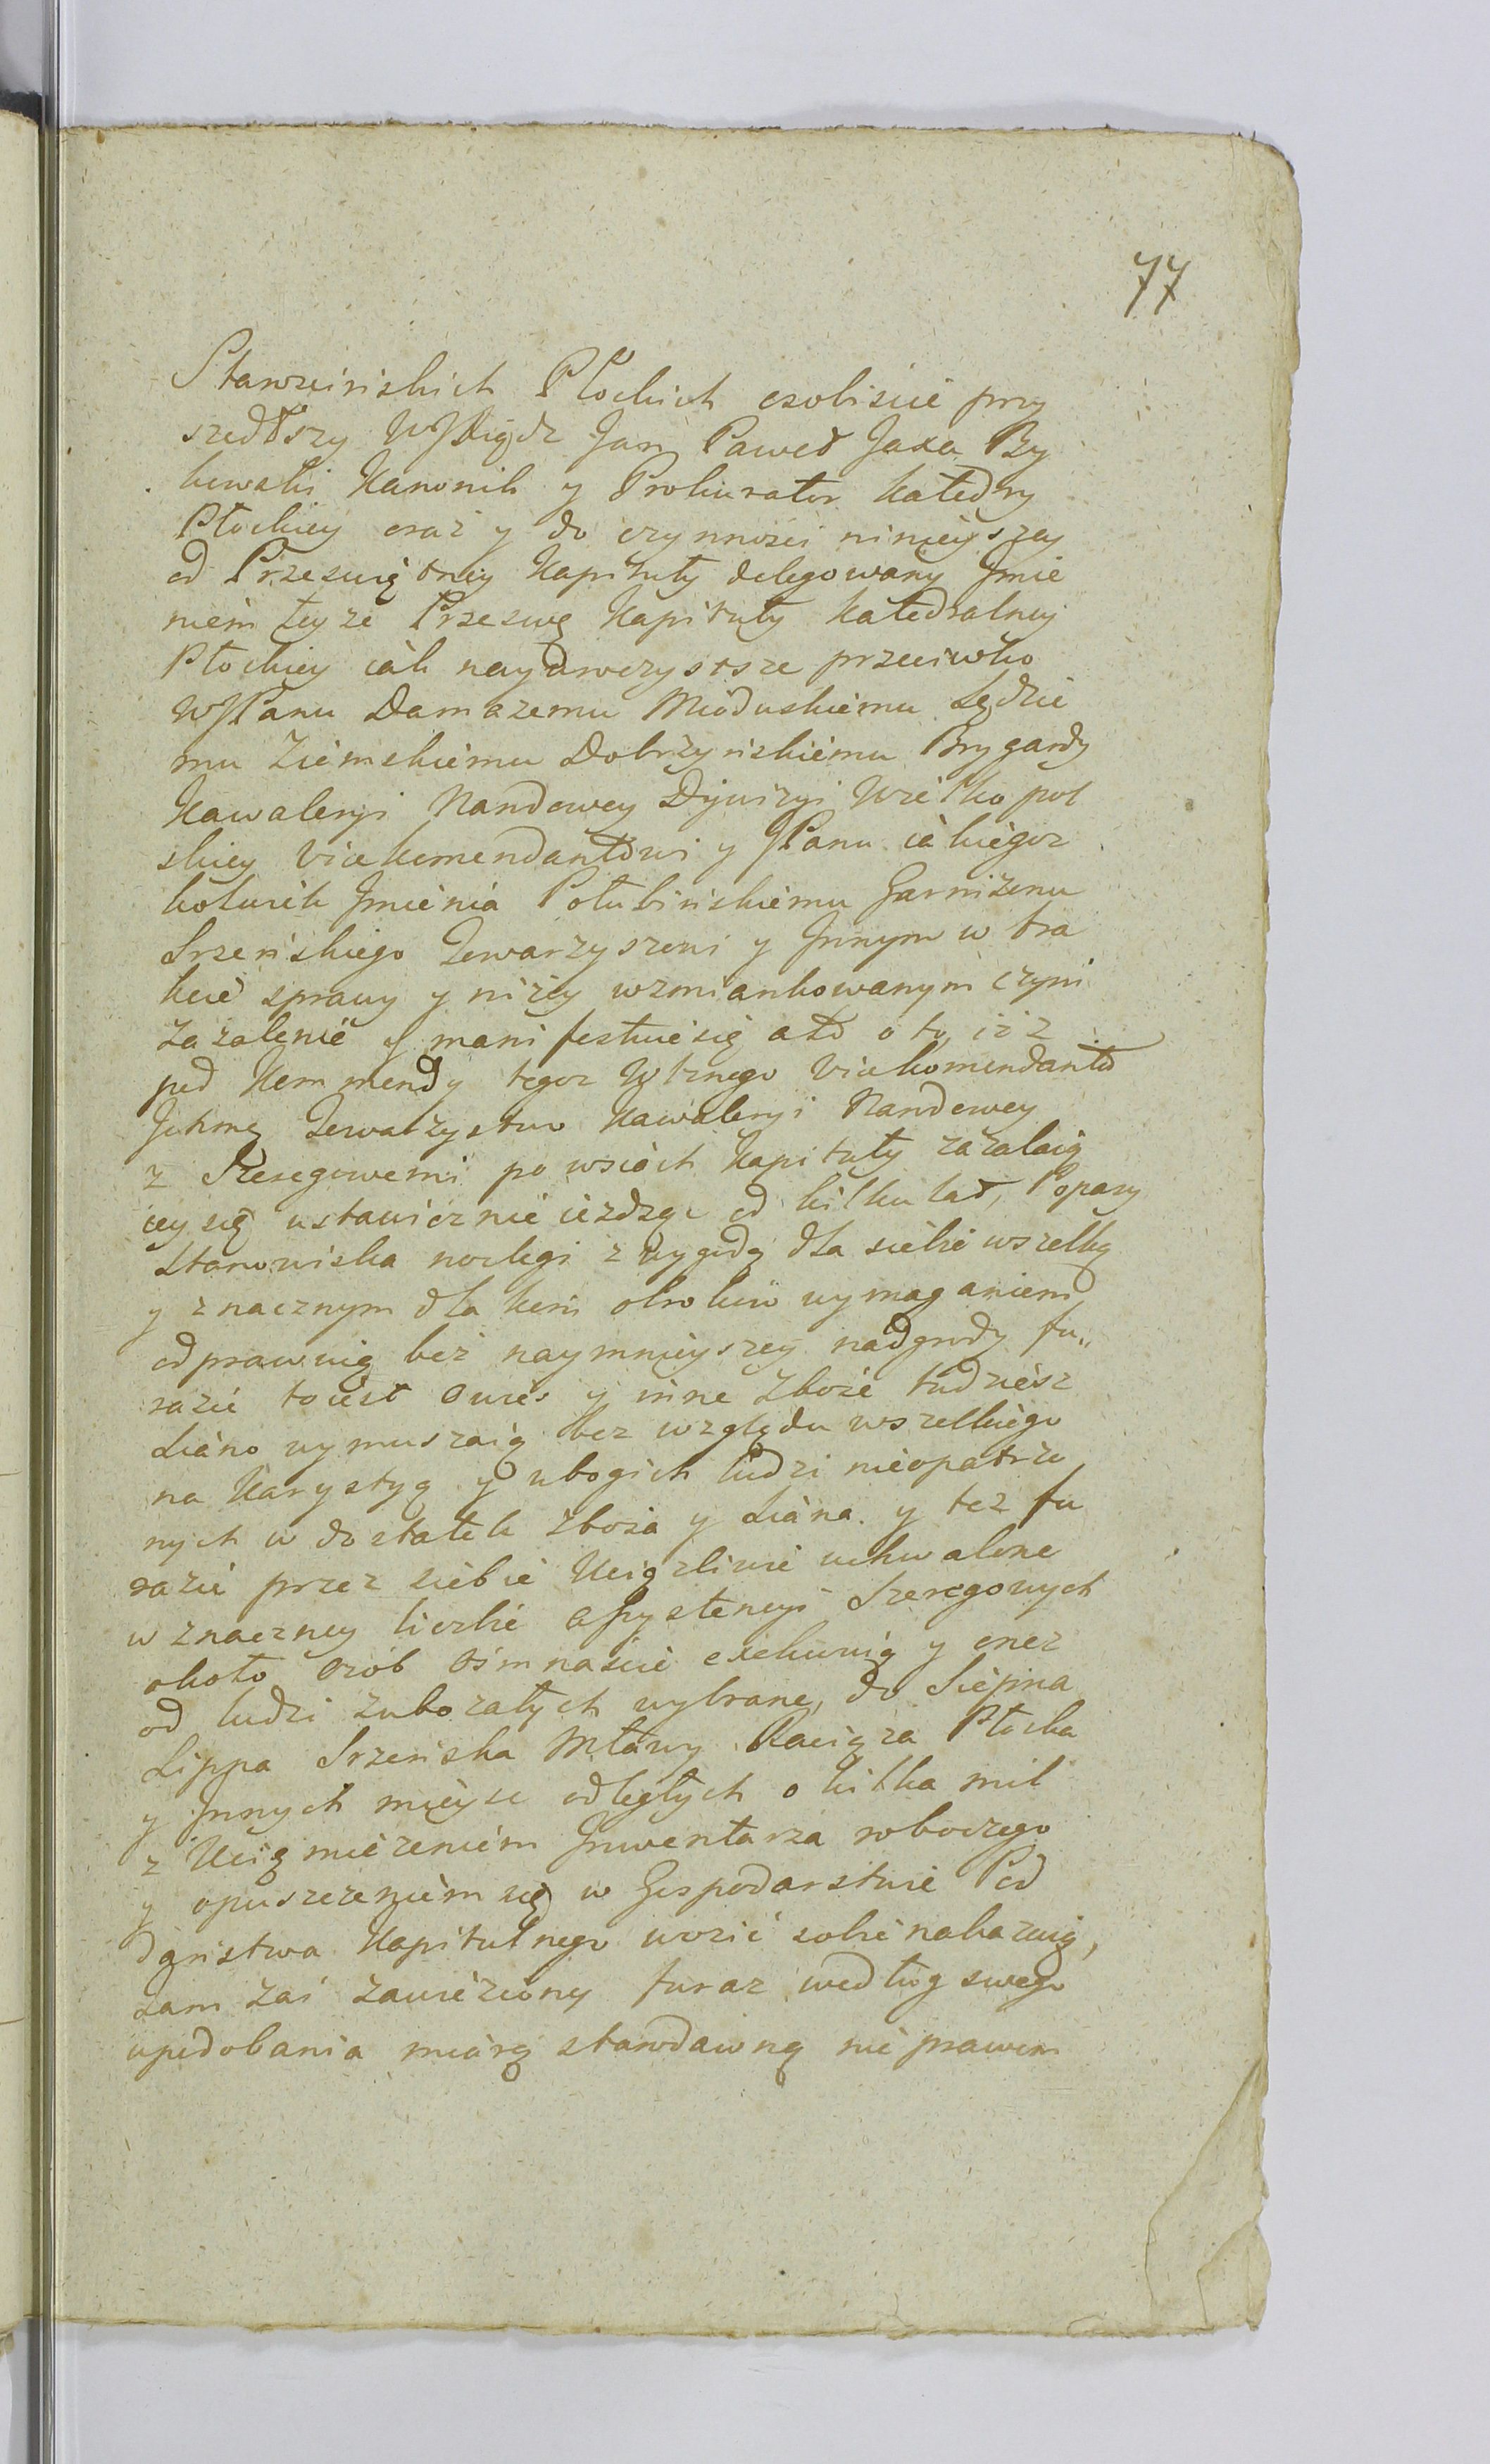 77
Starościńskich Płockich osobiscie przy
szedłszy WJXiądz Jan Paweł Jaxa By
kowski Kanonik y Prokurator Katedry
Płockiey oraz y do czynnosci ninieyszey
od Przeswiętney Kapituły delegowany Jmie
niem teyże Przeswę Kapituły Katedralney
Płockiey iák nayuroczystsze przeciwko
WJPanu Damazemu Mioduskiemu Sędzie
mu Ziemskiemu Dobrzyńskiemu Brygady
Kawaleryi Narodowey Dywizyi Wielkopol
skiey Vicekomendantowi y JPanu iákiegoż
kolwiek Jmienia Połubińskiemu Garnizonu
Srzeńskiego Towarzyszowi y Jnnym w tra
kcie sprawy y niżey wzmiankowanym czyni
zażalenie y manifestuie się ato o to, iż z
pod Kommendy tegoz Wżnego Vicekomendanta
Jchmę Towarzystwo Kawaleryi Narodowey
z Szeregowemi po wsiách Kapituły zażalaią
cey się ustawicznie ieżdżąc od kilku lat, Popasy
stanowiska noclegi z wygodą dla siebie wszelką
y znacznym dla koni obroków wymaganiem
odprawuią bez naymnieyszey nadgrody fu„
raże toiest owies y inne zboże tudziesz
siáno wymuszaią bez względu wszelkiego
na Karystyą y ubogich ludzi nieopatrzo
nych w dostatek zboża y siána. y też fu
raże przez siebie Uciązliwie uchwalone
w znaczney liczbie assystencyi Szeregowych
około osób ośmnaście exekwuią y onez
od ludzi zubożałych wybrane, do Siepna
Lippa Srzeńska Mławy Raciąża Płocka
y Jnnych mieysc odległych o kilka mil
z Uciąmiezeniem Jnwentarza roboczego
y opuszczeniem się w Gospodarstwie Pod
daństwa Kapitulnego wozić sobie nakazuią,
sam zaś zawieziony furaz według swego
upodobania miarą starodawną nie prawem